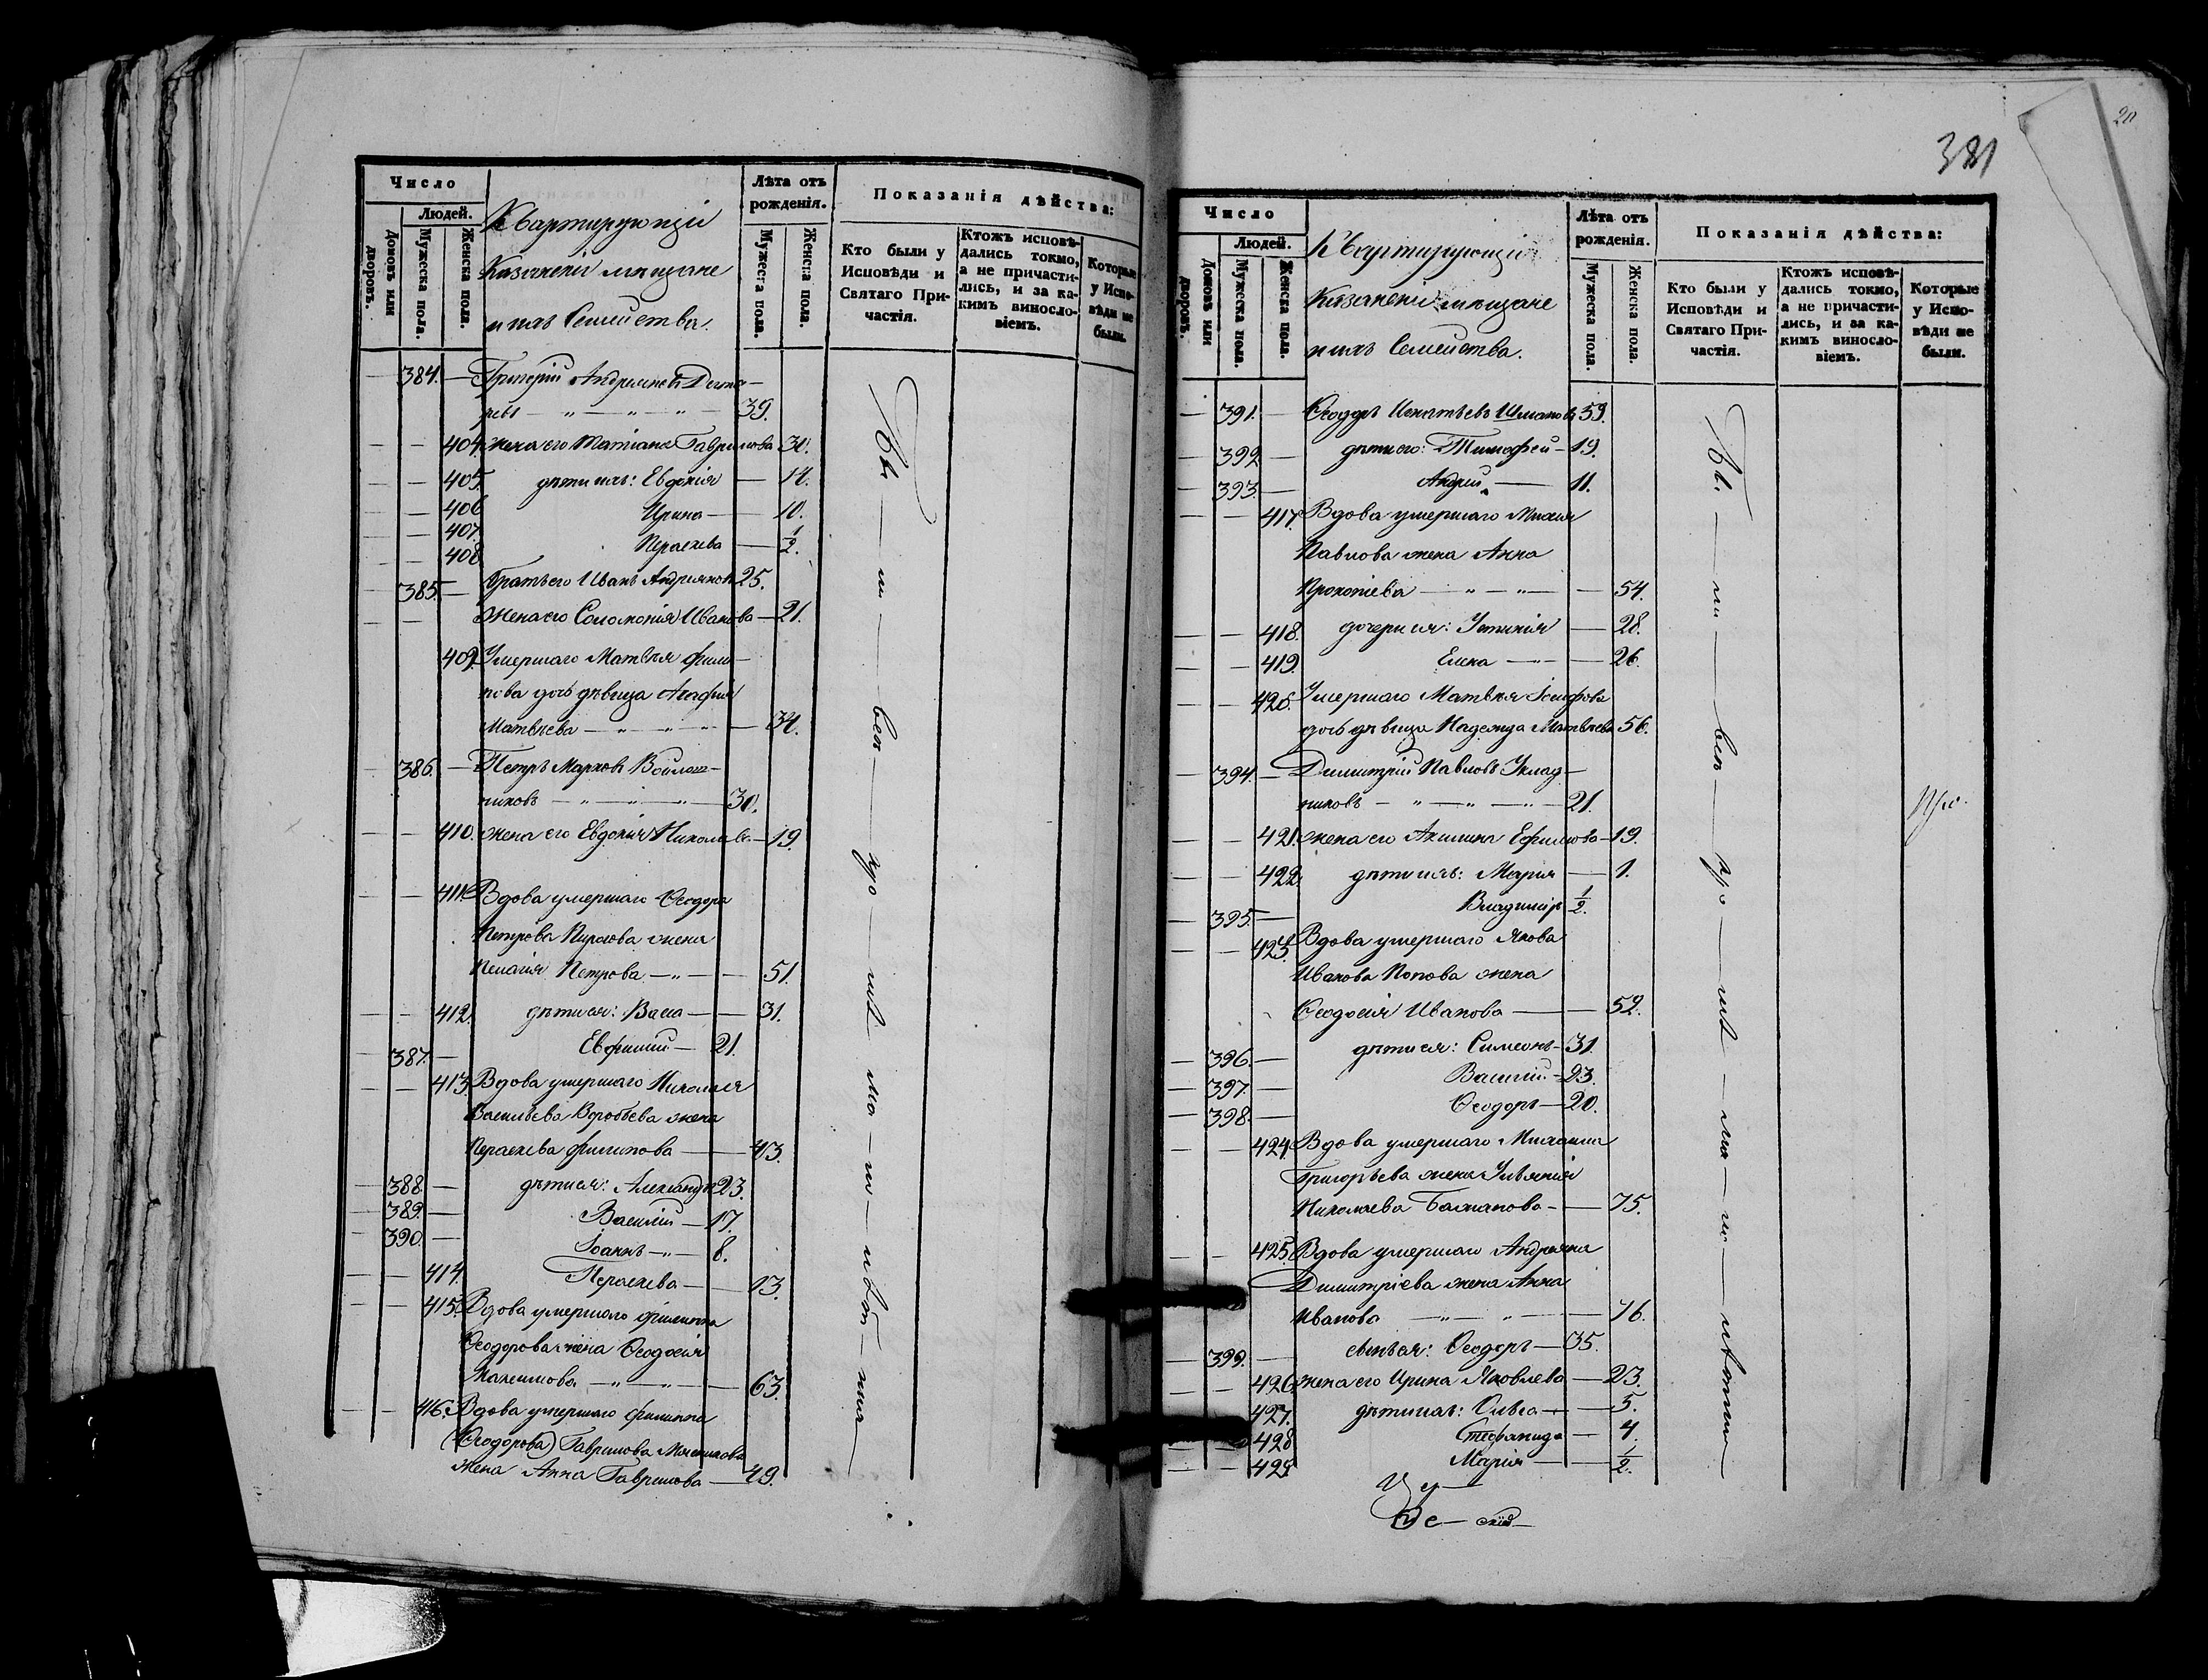 Число
Людей.
Домовъ или дворовъ.
Мужеска пола.
Женска пола.
Квартирующіи
Казачени мещане
и ихъ Семейства.
Лѣта отъ рожденія.
Мужеска пола.
Женска пола.
Показанія дѣйства:
Кто были у Исповѣди и Святаго Причастія.
Ктожъ исповѣдались токмо, а не причастились, и за какимъ винословіемъ.
Которые у Исповѣди не были.
384. — Григорій Андреяновъ
39.
404. жена его Татіана Гаврилова 30.
405. дѣти ихъ: Евдокія — 14.
406 Ирина — 10.
407. Параскева — 1/2.
408
385. — Братъ его Иванъ Андреяновъ 25.
Жена его Соломонія Иванова — 21.
409. Умершаго Матвѣя Фили-
пова дочь дѣвица Агафія
Матвѣева — 34.
386. — Петръ Марковъ Войлош-
никовъ — 30.
410. жена его Евдокія Николаева — 19.
411. Вдова умершаго Ѳеодора
Петрова жена
Пелагія Петрова — 51.
412. дѣти ея: Васса — 31.
387. — Евфимій — 21.
413. Вдова умершаго Николая
Васильева Воробьева жена
Параскева Филипова — 43.
388. — дѣти ея: Александръ 23.
389. — Василій — 17.
390. — Іоаннъ — 8.
414. Параскева — 13.
415. Вдова умершаго Филиппа
Ѳеодорова жена Ѳеодосія
Максимова — 63.
416. Вдова умершаго Филиппа
(Ѳеодорова) Гаврилова
жена Анна Гаврилова — 49.
381
20
Число
Людей.
Домовъ или дворовъ.
Мужеска пола.
Женска пола.
Квартирующіи
Казачени мещане
и ихъ Семейства.
Лѣта отъ рожденія.
Мужеска пола.
Женска пола.
Показанія дѣйства:
Кто были у Исповѣди и Святаго Причастія.
Ктожъ исповѣдались токмо, а не причастились, и за какимъ винословіемъ.
Которые у Исповѣди не были.
391. — Ѳеодоръ Игнатьевъ 59.
392 — дѣти его: Тимофей — 19.
393. — Андрей — 11.
417. Вдова умершаго
Павлова жена Анна
Прокопіева — 54.
418. дочери ея: Устинія — 28.
419. Елена — 26.
420. Умершаго Матвѣя Іосифова
дочь дѣвица Надежда Матвѣева 56.
394. — Димитрій Павловъ Уклад-
никовъ — 21.
421. жена его Акилина Ефимова — 19.
422. дѣти ихъ: Марія — 1.
395. — Владиміръ 1/2.
423. Вдова умершаго Якова
Иванова Попова жена
Ѳеодосія Иванова — 52.
396. — дѣти ея: Симеонъ — 31.
397. — Василій — 23.
398. — Ѳеодоръ — 20.
424. Вдова умершаго Михаила
Григорьева жена Ульянія
Николаева — 75.
425. Вдова умершаго Андреяна
Димитріева жена Анна
Иванова — 76.
399. — сынъ ея: Ѳеодоръ — 35.
426. жена его Ирина Яковлева — 23.
427. дѣти ихъ: Ольга — 5.
428 Стефанида — 4.
429 Марія — 1/2.